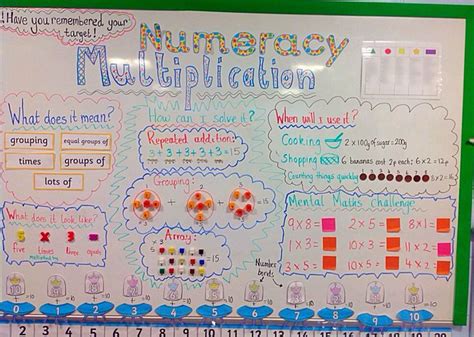 !! Have you remembered your
target!
Numeracy
Multiplication
What does it mean?
grouping
equal groups of
times
groups of
lots of
How can I solve it?
Repeated addition:
3+3+3+3+3=15
Grouping:
+ + =15
Array:
×3
5
=15
When will I use it?
Cooking 2 x 100g of sugar = 200g
Shopping 6 bananas cost 2p each: 6×2 = 12p
Counting things quickly
What does it look like?
five times three equals
multiplied by
Mental Maths Challenge
9×8=
2×5=
8×1=
1×3=
10×3=
11×2=
3×5=
10×10=
4×2=
Number
bonds
=10
0 1 2 3 4 5 6 7 8 9 10
2 3 4 5 6 7 8 9 10 11 12 13 14 15 16 17 18 19 20